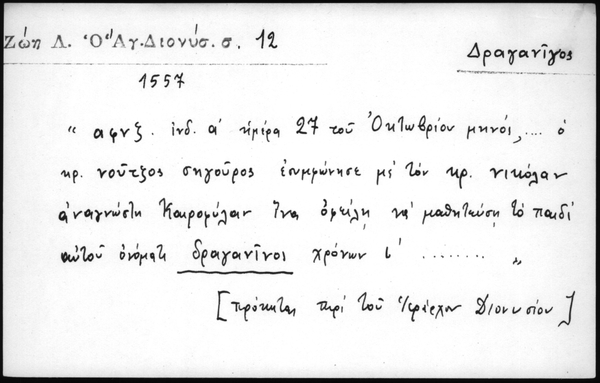 Ζώη Λ. Ὁ Ἅγ. Διονύσ. σ. 12
Δραγανῖγος
1557
" αφνζ. ἰνδ. α' ἡμέρα 27 τοῦ Ὀκτωβρίου μηνός, .... ὁ
κρ. νοῦτζος σηγοῦρος ἐσυμφώνησε μὲ τὸν κρ. νικόλαν
ἀναγνώστη Καιρομύλαν ἵνα ὀφείλη νὰ μαθητεύση τὸ παιδί
αὐτοῦ ὀνόματι δραγανῖνοι χρόνων ι' ........ "
[πρόκειται περί τοῦ Ἱεράρχου Διονυσίου]